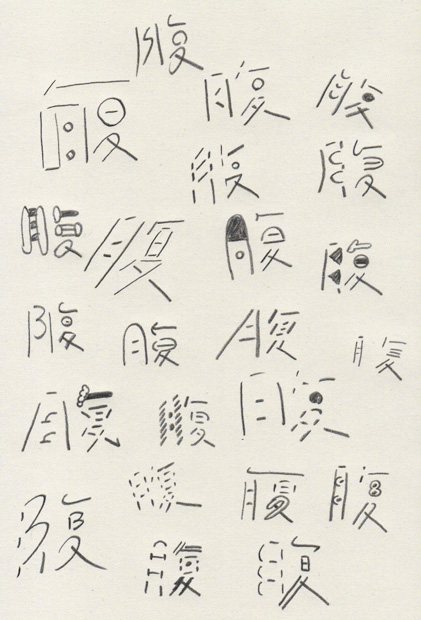 腹
腹 腹 腹
腹 腹
腹 腹 腹 腹
腹 腹 腹 腹
腹 腹 腹
腹 腹 腹
腹 腹 腹